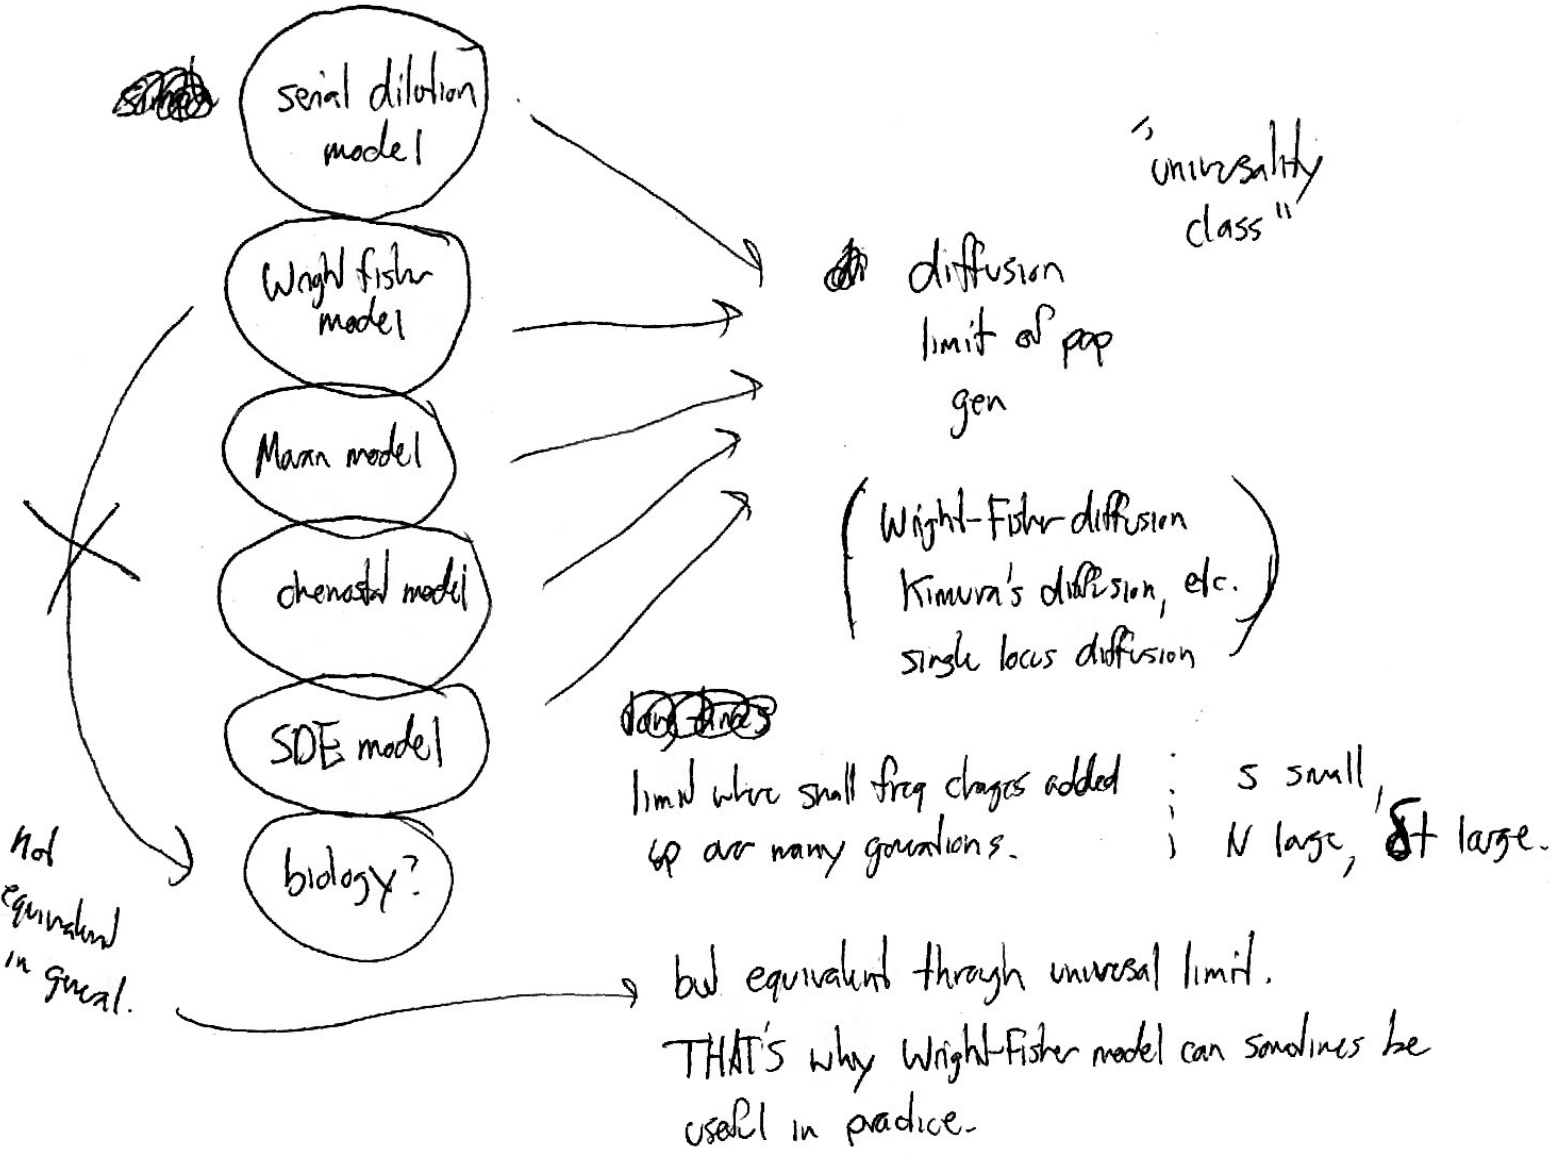 serial dilution
model
Wright Fisher
model
Moran model
chemostat model
SDE model
biology?
not
equivalent
in general.
"universality
class"
diffusion
limit of pop
gen
(Wright-Fisher diffusion
Kimura's diffusion, etc.
single locus diffusion)
limit where small freq changes added
up over many generations.
s small,
N large, δt large.
but equivalent through universal limit.
THAT'S why Wright-Fisher model can sometimes be
useful in practice.